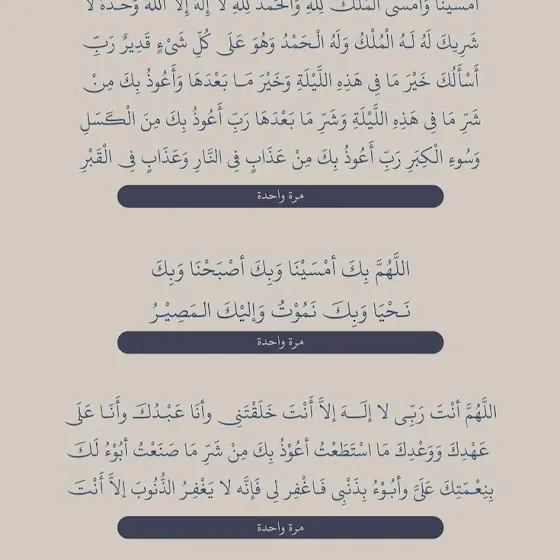 أَمْسَيْنَا وَأَمْسَى الْمُلْكُ لِلَّهِ وَالْحَمْدُ لِلَّهِ لَا إِلَهَ إِلَّا اللَّهُ وَحْدَهُ لَا
شَرِيكَ لَهُ لَـهُ الْمُلْكُ وَلَهُ الْـحَمْدُ وَهُوَ عَلَى كُلِّ شَيْءٍ قَدِيرٌ رَبِّ
أَسْأَلُكَ خَيْرَ مَا فِي هَذِهِ اللَّيْلَةِ وَخَيْرَ مَـا بَعْدَهَا وَأَعُوذُ بِكَ مِنْ
شَرِّ مَا فِي هَذِهِ اللَّيْلَةِ وَشَرِّ مَا بَعْدَهَا رَبِّ أَعُوذُ بِكَ مِنَ الْكَسَلِ
وَسُوءِ الْكِبَرِ رَبِّ أَعُوذُ بِكَ مِنْ عَذَابٍ فِي النَّارِ وَعَذَابٍ فِي الْقَبْرِ
مرة واحدة
اللَّهُمَّ بِكَ أَمْسَيْنَا وَبِكَ أَصْبَحْنَا وَبِكَ
نَـحْيَا وَبِكَ نَمُوْتُ وَإِلَيْكَ الـمَصِيْـرُ
مرة واحدة
اللَّهُمَّ أَنْتَ رَبِّـي لا إِلَــهَ إلاَّ أَنْتَ خَلَقْتَنِي وأنَا عَبْـدُكَ وأَنَـا عَلَى
عَهْدِكَ وَوَعْدِكَ مَا اسْتَطَعْتُ أعُوْذُ بِكَ مِنْ شَرِّ مَا صَنَعْتُ أبُوْءُ لَكَ
بِنِعْـمَتِكَ عَلَيَّ وأبُـوْءُ بِذَنْبِي فَـاغْفِر لِي فَإِنَّه لا يَغْفِـرُ الذُّنُوبَ إلاَّ أَنْتَ
مرة واحدة